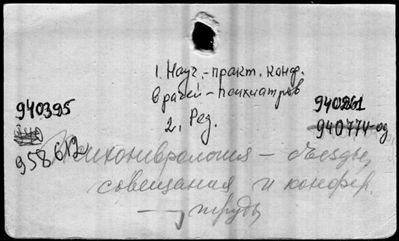 1. Науч.-практ. конф.
врачей-психиатров
2. Ред.
940395
958612
940261
940774-од
Психоневрология – съезды,
совещания и конфер.
– труды